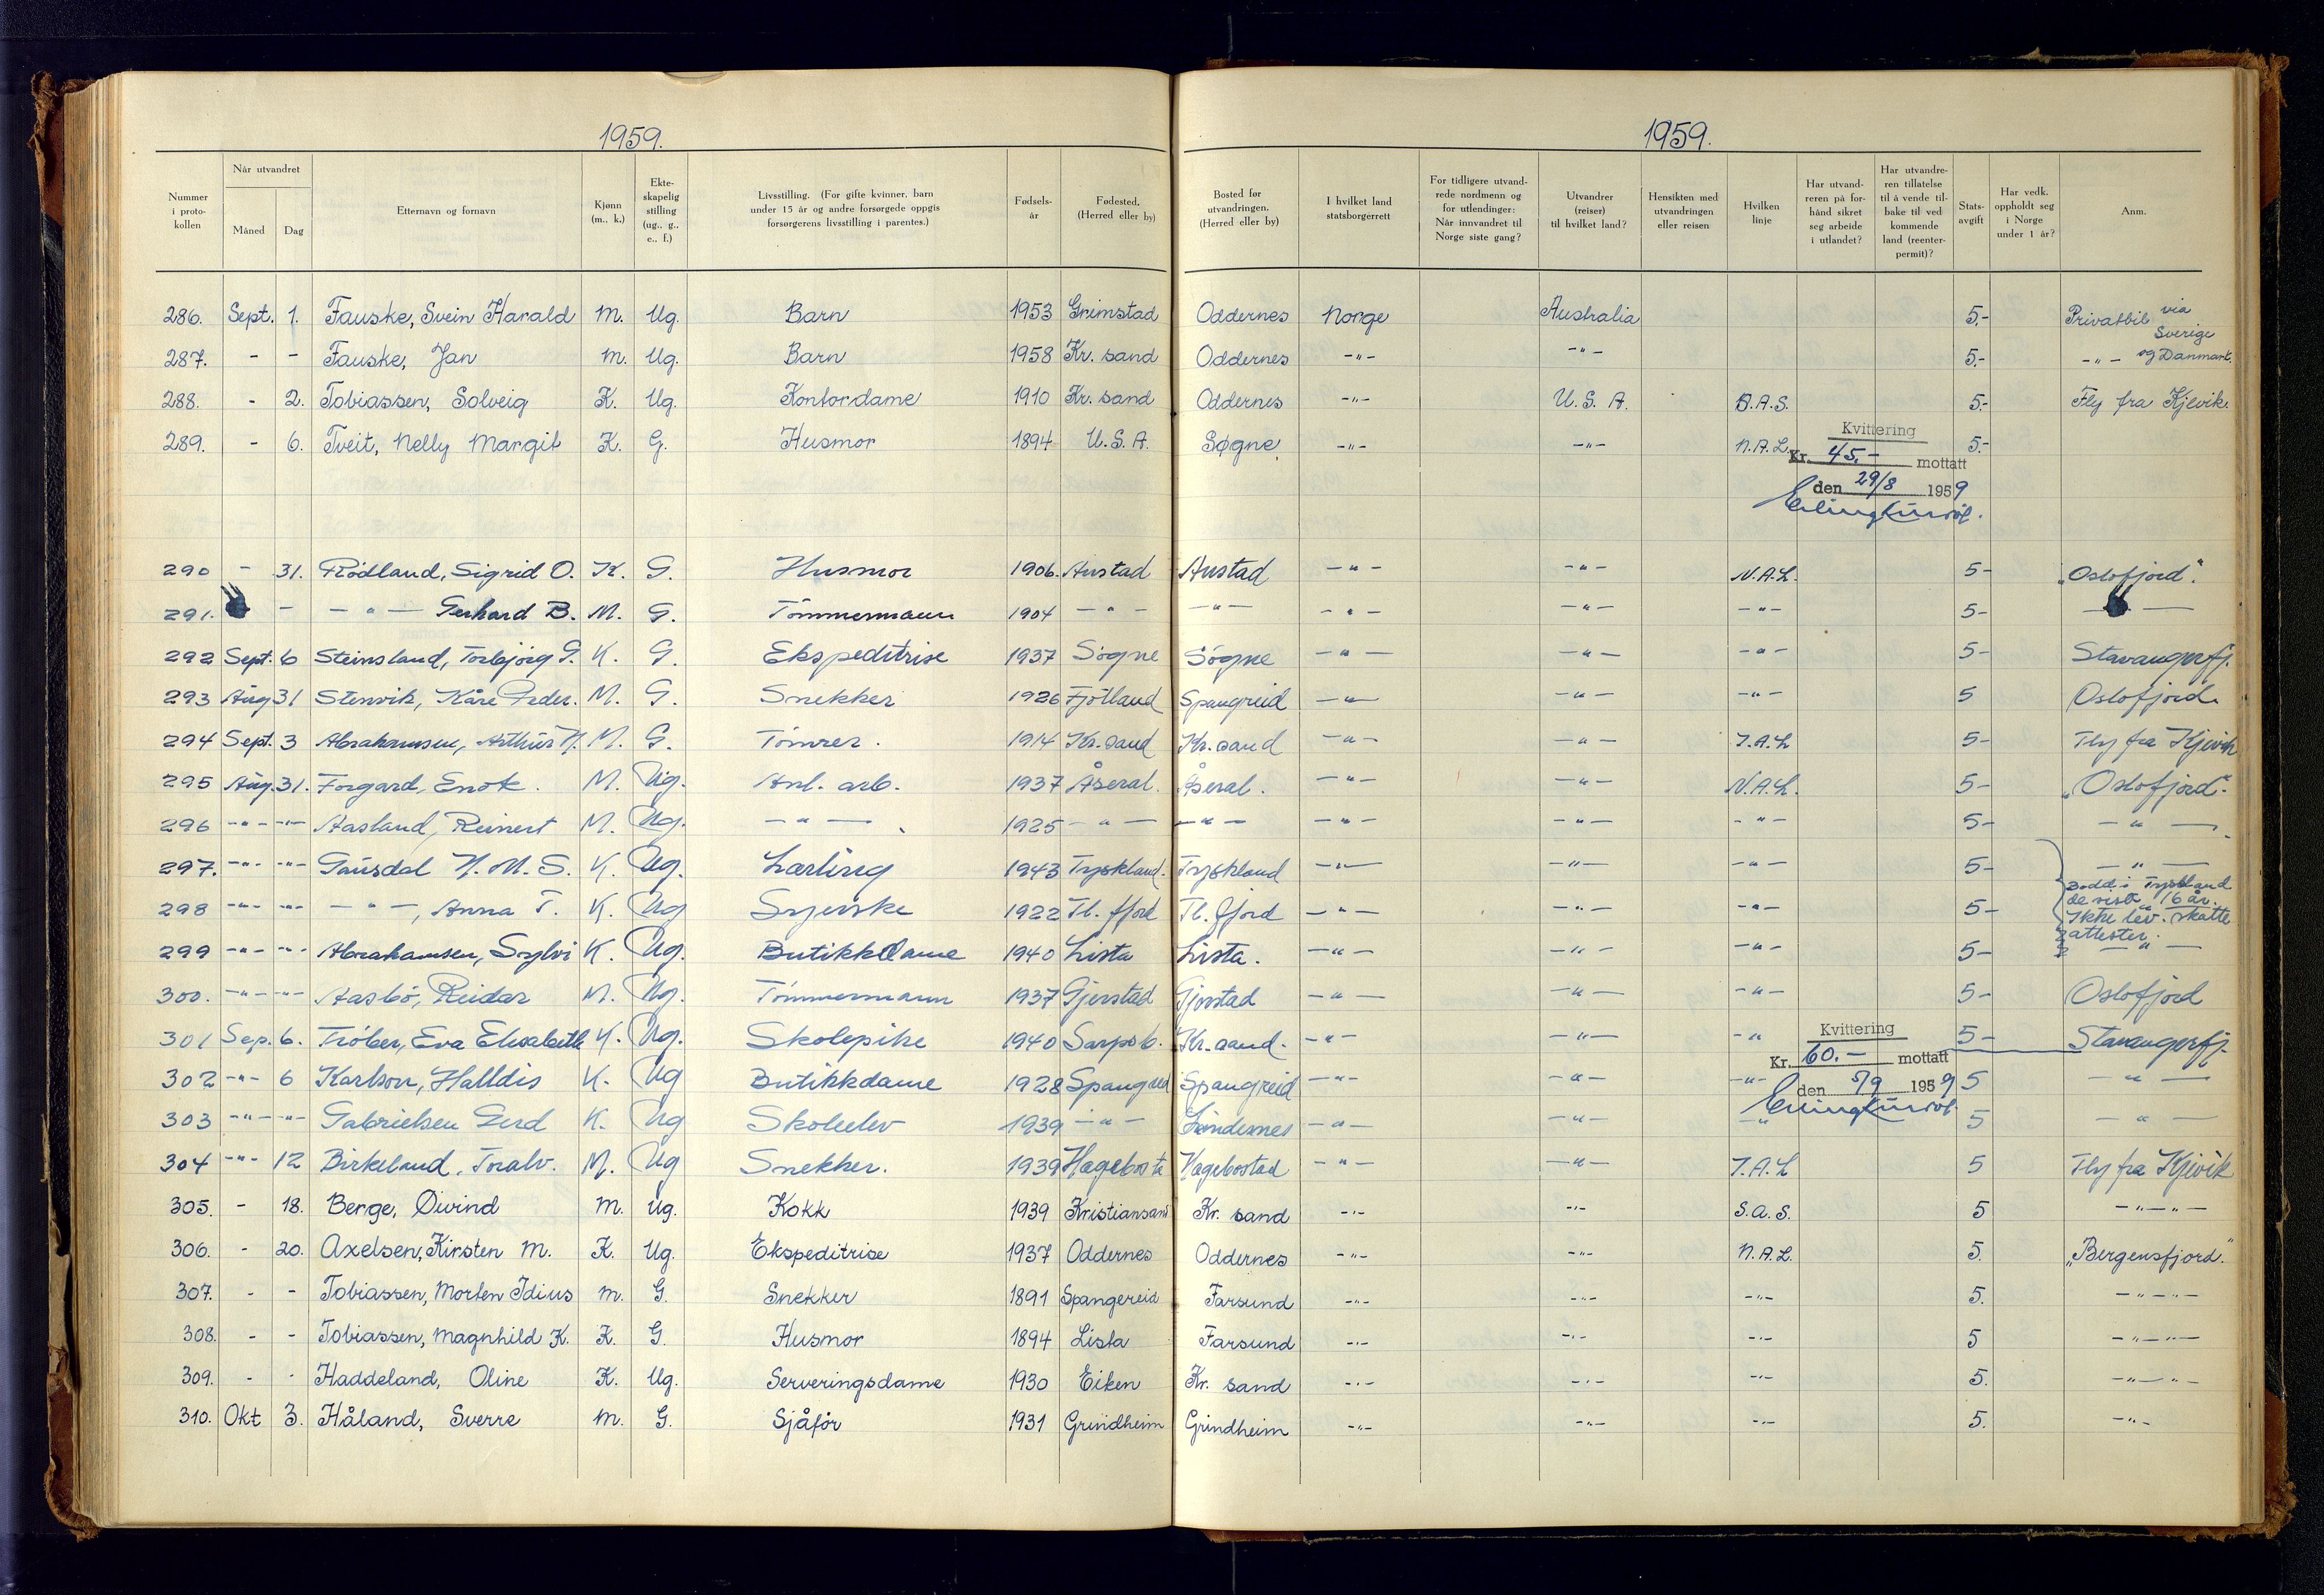 1959. 1959.
Nummer i proto-kollen | Når utvandret | Måned | Dag | Etternavn og fornavn | Kjønn (m., k.) | Ekte-skapelig stilling (ug., g., e., f.) | Livsstilling. (For gifte kvinner, barn under 15 år og andre forsørgede oppgis forsørgerens livsstilling i parentes.) | Fødsels-år | Fødested. (Herred eller by) | Bosted før utvandringen. (Herred eller by) | I hvilket land statsborgerrett | For tidligere utvand-rede nordmenn og for utlendinger: Når innvandret til Norge siste gang? | Utvandrer (reiser) til hvilket land? | Hensikten med utvandringen eller reisen | Hvilken linje | Har utvand-reren på for-hånd sikret seg arbeide i utlandet? | Har utvandre-ren tillatelse til å vende til-bake til ved kommende land (reenter-permit)? | Stats-avgift | Har vedk. oppholdt seg i Norge under 1 år? | Anm.
286. Sept. 1. Fauske, Svein Harald m. Ug. Barn 1953 Grimstad Oddernes Norge Australia 5,- Privatbil via Sverige
287. - - Fauske, Jan m. Ug. Barn 1958 Kr. sand Oddernes -"- -"- 5,- -"- og Danmark.
288. - 2. Tobiassen, Solveig K. Ug. Kontordame 1910 Kr. sand Oddernes -"- U. S. A. B.A.S. 5,- Fly fra Kjevik.
289. - 6. Tveit, Nelly Margit K. G. Husmor 1894 U. S. A. Søgne -"- -"- N.A.L. 5,-
Kvittering
Kr. 45.- mottatt
den 29/8 1959
290 - 31. Rödland, Sigrid O. K. G. Husmor 1906. Austad Austad -"- -"- N.A.L. 5- "Oslofjord".
291. - -"- Gerhard B. M. G. Tömmermann 1904 -"- -"- -"- -"- -"- 5-
292 Sept. 6 Steinsland, Torbjörg G. K. G. Ekspeditrise 1937 Sögne Sögne -"- -"- -"- 5- Stavangerfj.
293 Aug. 31 Stenvik, Kåre Peder. M. G. Snekker 1926 Fjotland Spangreid -"- -"- -"- 5 Oslofjord.
294 Sept. 3 Abrahamsen, Arthur N. M. G. Tömrer. 1914 Kr. sand Kr. sand -"- -"- I.A.L 5- Fly fra Kjevik
295 Aug. 31. Forgard, Enok. M. Ug. Anl. arb. 1937 Åseral. Åseral. -"- -"- N.A.L. 5- "Oslofjord".
296 -"- -"- Aasland, Reinert M. Ug. -"- 1925 -"- -"- -"- -"- -"- 5- -"-
297. -"- -"- Gausdal N. M. S. K. Ug. Lærling 1943 Tyskland. Tyskland -"- -"- -"- 5- -"-
298 -"- -"- -"-, Anna T. K. Ug Syerske 1922 Tl. fjord Tl. fjord -"- -"- -"- 5- Bodd i Tyskland de siste 16 år. Ikke lev. skatte attester.
299 -"- -"- Abrahamsen, Sylvi K. Ug. Butikkdame 1940 Lista Lista. -"- -"- -"- 5- -"-
300. -"- -"- Aasbö, Reidar M. Ug. Tömmermann 1937 Gjerstad Gjerstad -"- -"- -"- 5- Oslofjord
301 Sep. 6. Tröber, Eva Elisabeth K. Ug. Skolepike 1940 Sarpsb. Kr. sand. -"- -"- -"- 5- Stavangerfj.
Kvittering
Kr. 60.- mottatt
den 5/9 1959
302 -"- 6 Karlson, Halldis K. Ug Butikkdame 1928 Spangreid Spangreid -"- -"- -"- 5 -"-
303 -"- -"- Gabrielsen Gerd K. Ug Skoleelev 1939 -"- Lindesnes -"- -"- -"- 5 -"-
304 -"- 12 Birkeland, Toralv. M. Ug Snekker. 1939 Hægebostad Hægebostad -"- -"- I.A.L 5 Fly fra Kjevik
305. - 18. Berge, Øivind m. Ug. Kokk 1939 Kristiansand Kr. sand -"- -"- S.A.S. 5 -"-"-
306. - 20. Axelsen, Kirsten M. K. Ug. Ekspeditrise 1937 Oddernes Oddernes -"- -"- N.A.L. 5. "Bergensfjord."
307. - - Tobiassen, Morten Idius m. G. Snekker 1891 Spangereid Farsund -"- -"- -"- 5. -"-"-
308. - - Tobiassen, Magnhild K. K. G. Husmor 1894 Lista Farsund -"- -"- -"- 5 -"-"-
309. - - Haddeland, Oline K. Ug. Serveringsdame 1930 Eiken Kr. sand -"- -"- -"- 5. -"-"-
310. Okt 3. Håland, Sverre m. G. Sjåfør 1931 Grindheim Grindheim -"- -"- -"- 5. -"-